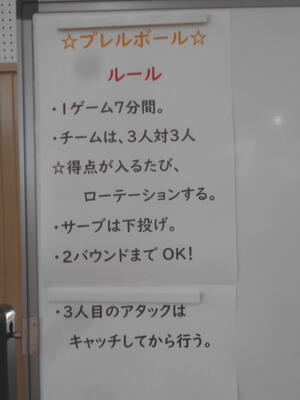 ☆プレルボール☆
ルール
・1ゲーム7分間。
・チームは、3人対3人
☆得点が入るたび、
ローテーションする。
・サーブは下投げ。
・2バウンドまでOK!
・3人目のアタックは
キャッチしてから行う。